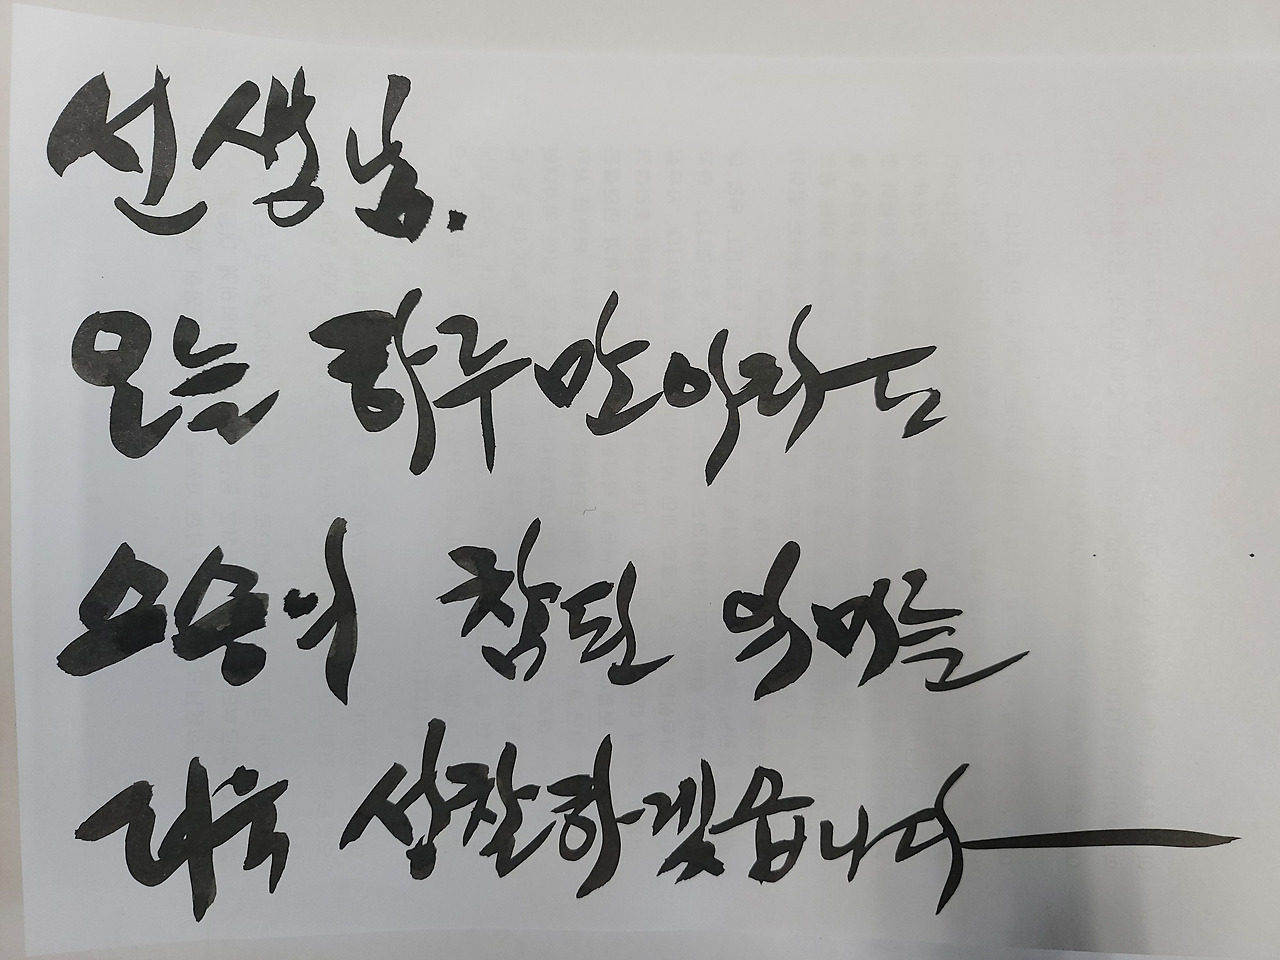 선생님.
오늘 하루만이라도
소승의 참된 의미를
더욱 성찰하겠습니다